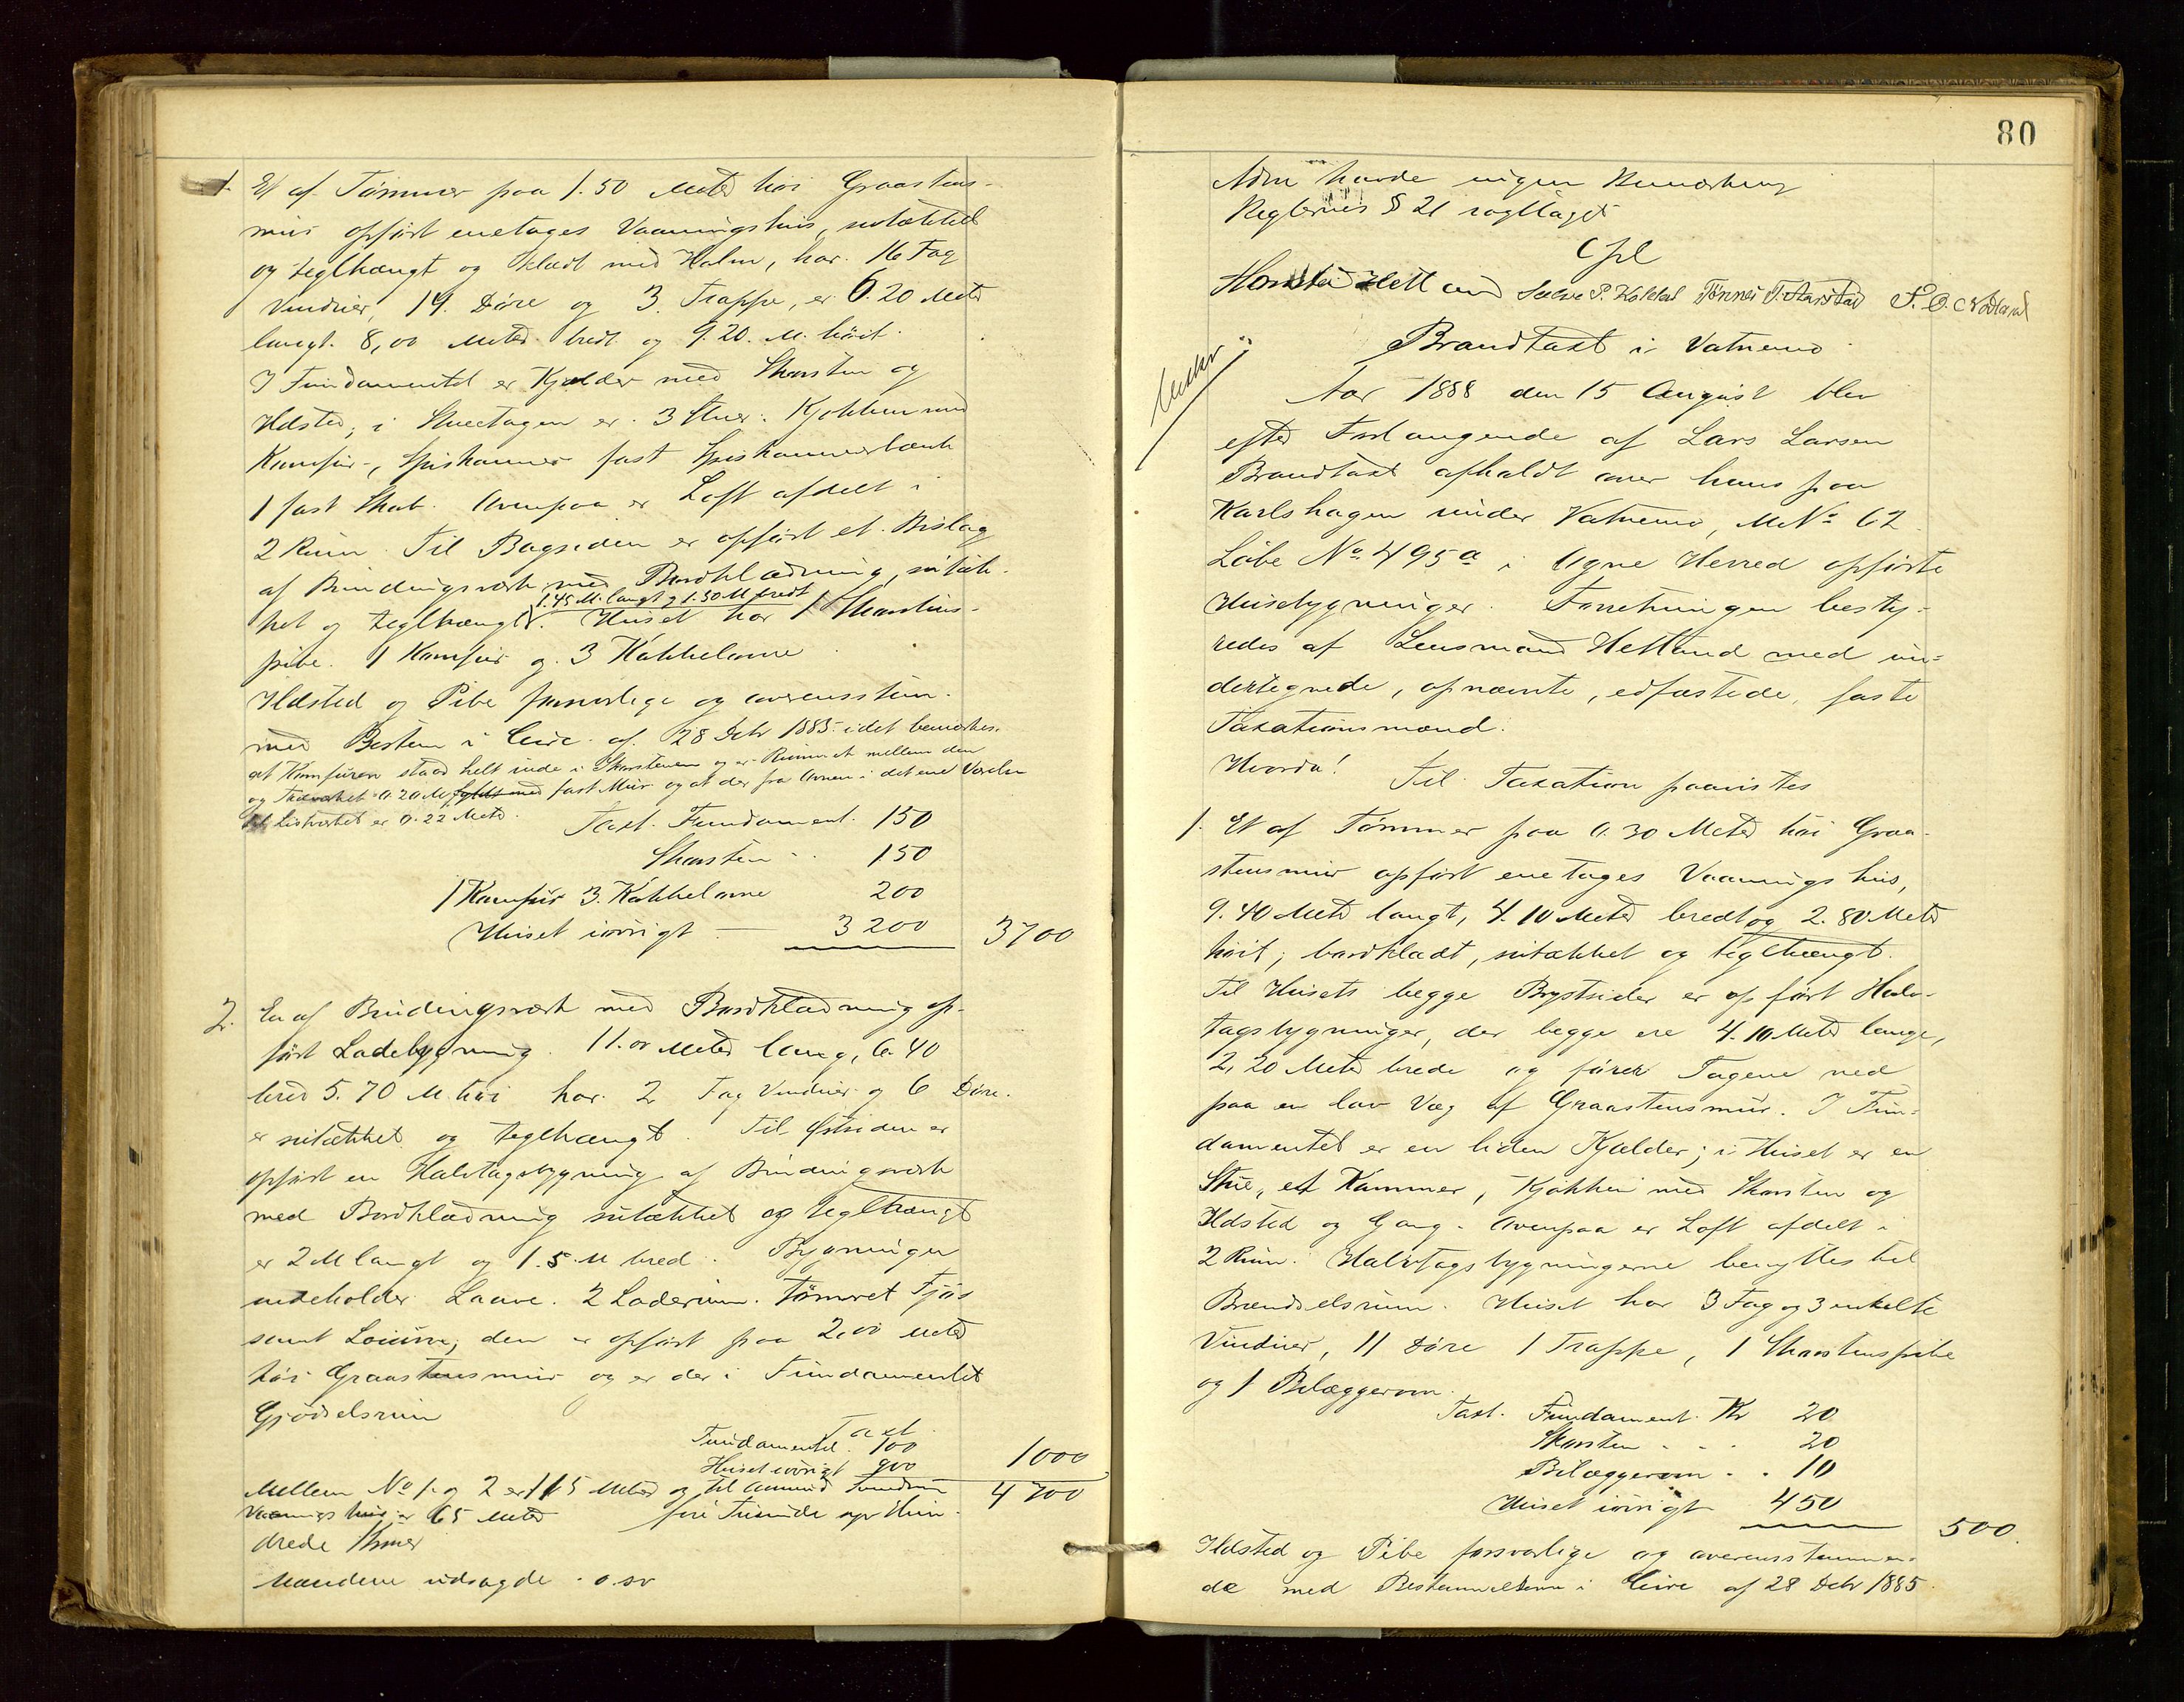 1. Et af Tømmer paa 1.50 Meter høi Graastens-
mur opført enetages Vaaningshus, sutækket
og teglhængt og klædt med Halm, har 16 Fag
Vinduer, 14 Døre og 3 Trappe, er 6.20 Meter
langt 8,00 Meter bredt og 9.20 M. høit.
I Fundamentet er Kjælder med Skorsten og
Ildsted; i Stueetagen er 3 Stuer. Kjøkken med
Komfur, Spiskammer fast Spiskammerbænk
1 fast Skab. Ovenpaa er Loft afdelt i
2 Rum. Til Bagsiden er opført et Bislag
af Bindingsværk med Bordklædning, sutæk-
1.45 M. langt og 1.30 M bredt
ket og teglhængt. Huset har 1 Skorstens-
pibe. 1 Komfur og 3 Kakkelovne
Ildsted og Pibe forsvarlige og overensstem.
med Bestem i Circ. af 28 Debr 1885 idet bemærkes
at Komfuren staar helt inde i Skorstenen og er Rummet mellem den
og Træværket 0.20 M fyldt med fast Mur og at der fra Ovnen i det ene Værelse
til Listværket er 0.22 Meter.
Taxt. Fundament. 150
Skorsten 150
1 Komfur 3. Kakkelovne 200
Huset iøvrigt 3200 3700
2. En af Bindingsværk med Bordklædning op-
ført Ladebygning. 11.00 Meter lang, 6.40
bred 5.70 M. høi har 2 Fag Vinduer og 6 Døre.
er sutækket og teglhængt. Til Østsiden er
opført en Halvtagsbygning af Bindingsværk
med Bordklædning sutækket og teglhængt
er 2 M langt og 1.5 M bred. Bygningen
indeholder Laave. 2 Laderum. tømret Fjøs
samt Lorum, den er opført paa 2,00 Meter
høi Graastensmur og er der i Fundamentet
Gjødselsrum
Taxt
Fundamentet. 100
Huset iøvrigt 900 1000
Mellem No 1. og 2 er 115 Meter og til Amund 4700
Vaaningshus er 65 Meter fire Tusinde syv Hun-
drede Kroner
Mændene udsagde o.s.v
80
havde ingen Bemærkning
Reglernes § 21 iagttaget
Cpl
Tønnes T. Aarstad
Brandtaxt i Vatnemo
Aar 1888 den 15 August blev
efter Forlangende af Lars Larsen
Brandtaxt afholdt over hans paa
Karlshagen under Vatnemo, M No 62
Løbe No 495a i Ogne Herred opførte
Husebygninger. Forretningen besty-
redes af Lensmand Hetland med un-
dertegnede, opnævnte, edfæstede, faste
Taxationsmænd.
Hvorda!
Til Taxation paavistes
1. Et af Tømmer paa 0.30 Meter høi Graa-
stensmur opført enetages Vaanings hus,
9.40 Meter langt, 4.10 Meter bredt og 2.80 Meter
høit; bordklædt, sutækket og teglhængt.
Til Husets begge Brystsider er opført Halv-
tagsbygninger, der begge ere 4.10 Meter lange,
2,20 Meter brede og fører Tagene ned
paa en lav Væg af Graastensmur. I Fun-
damentet er en liden Kjælder; i Huset er en
Stue, et Kammer, Kjøkken med Skorsten og
Ildsted og Gang. Ovenpaa er Loft afdelt i
2 Rum. Halvtagsbygningerne benyttes til
Brændselsrum. Huset har 3 Fag og 3 enkelte
Vinduer, 11 Døre 1 Trappe, 1 Skorstenspibe
og 1 Bilæggerovn.
Taxt. Fundament. Kr 20
Skorsten 20
Bilæggerovn 10
Huset iøvrigt 450
500
Ildsted og Pibe forsvarlige og overensstemmen-
de med Bestemmelserne i Circ af 28 Debr 1885